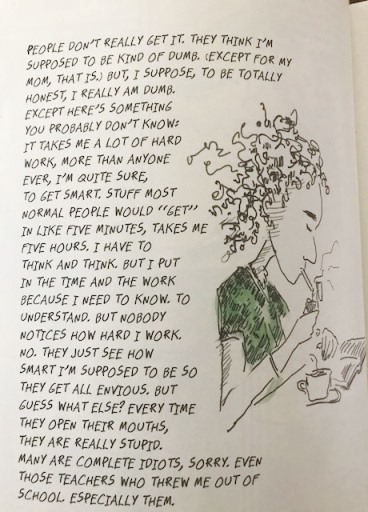 PEOPLE DON'T REALLY GET IT. THEY THINK I'M
SUPPOSED TO BE KIND OF DUMB. (EXCEPT FOR MY
MOM, THAT IS.) BUT, I SUPPOSE, TO BE TOTALLY
HONEST, I REALLY AM DUMB.
EXCEPT HERE'S SOMETHING
YOU PROBABLY DON'T KNOW:
IT TAKES ME A LOT OF HARD
WORK, MORE THAN ANYONE
EVER, I'M QUITE SURE,
TO GET SMART. STUFF MOST
NORMAL PEOPLE WOULD "GET"
IN LIKE FIVE MINUTES, TAKES ME
FIVE HOURS. I HAVE TO
THINK AND THINK. BUT I PUT
IN THE TIME AND THE WORK
BECAUSE I NEED TO KNOW. TO
UNDERSTAND. BUT NOBODY
NOTICES HOW HARD I WORK.
NO. THEY JUST SEE HOW
SMART I'M SUPPOSED TO BE SO
THEY GET ALL ENVIOUS. BUT
GUESS WHAT ELSE? EVERY TIME
THEY OPEN THEIR MOUTHS,
THEY ARE REALLY STUPID.
MANY ARE COMPLETE IDIOTS, SORRY. EVEN
THOSE TEACHERS WHO THREW ME OUT OF
SCHOOL. ESPECIALLY THEM.